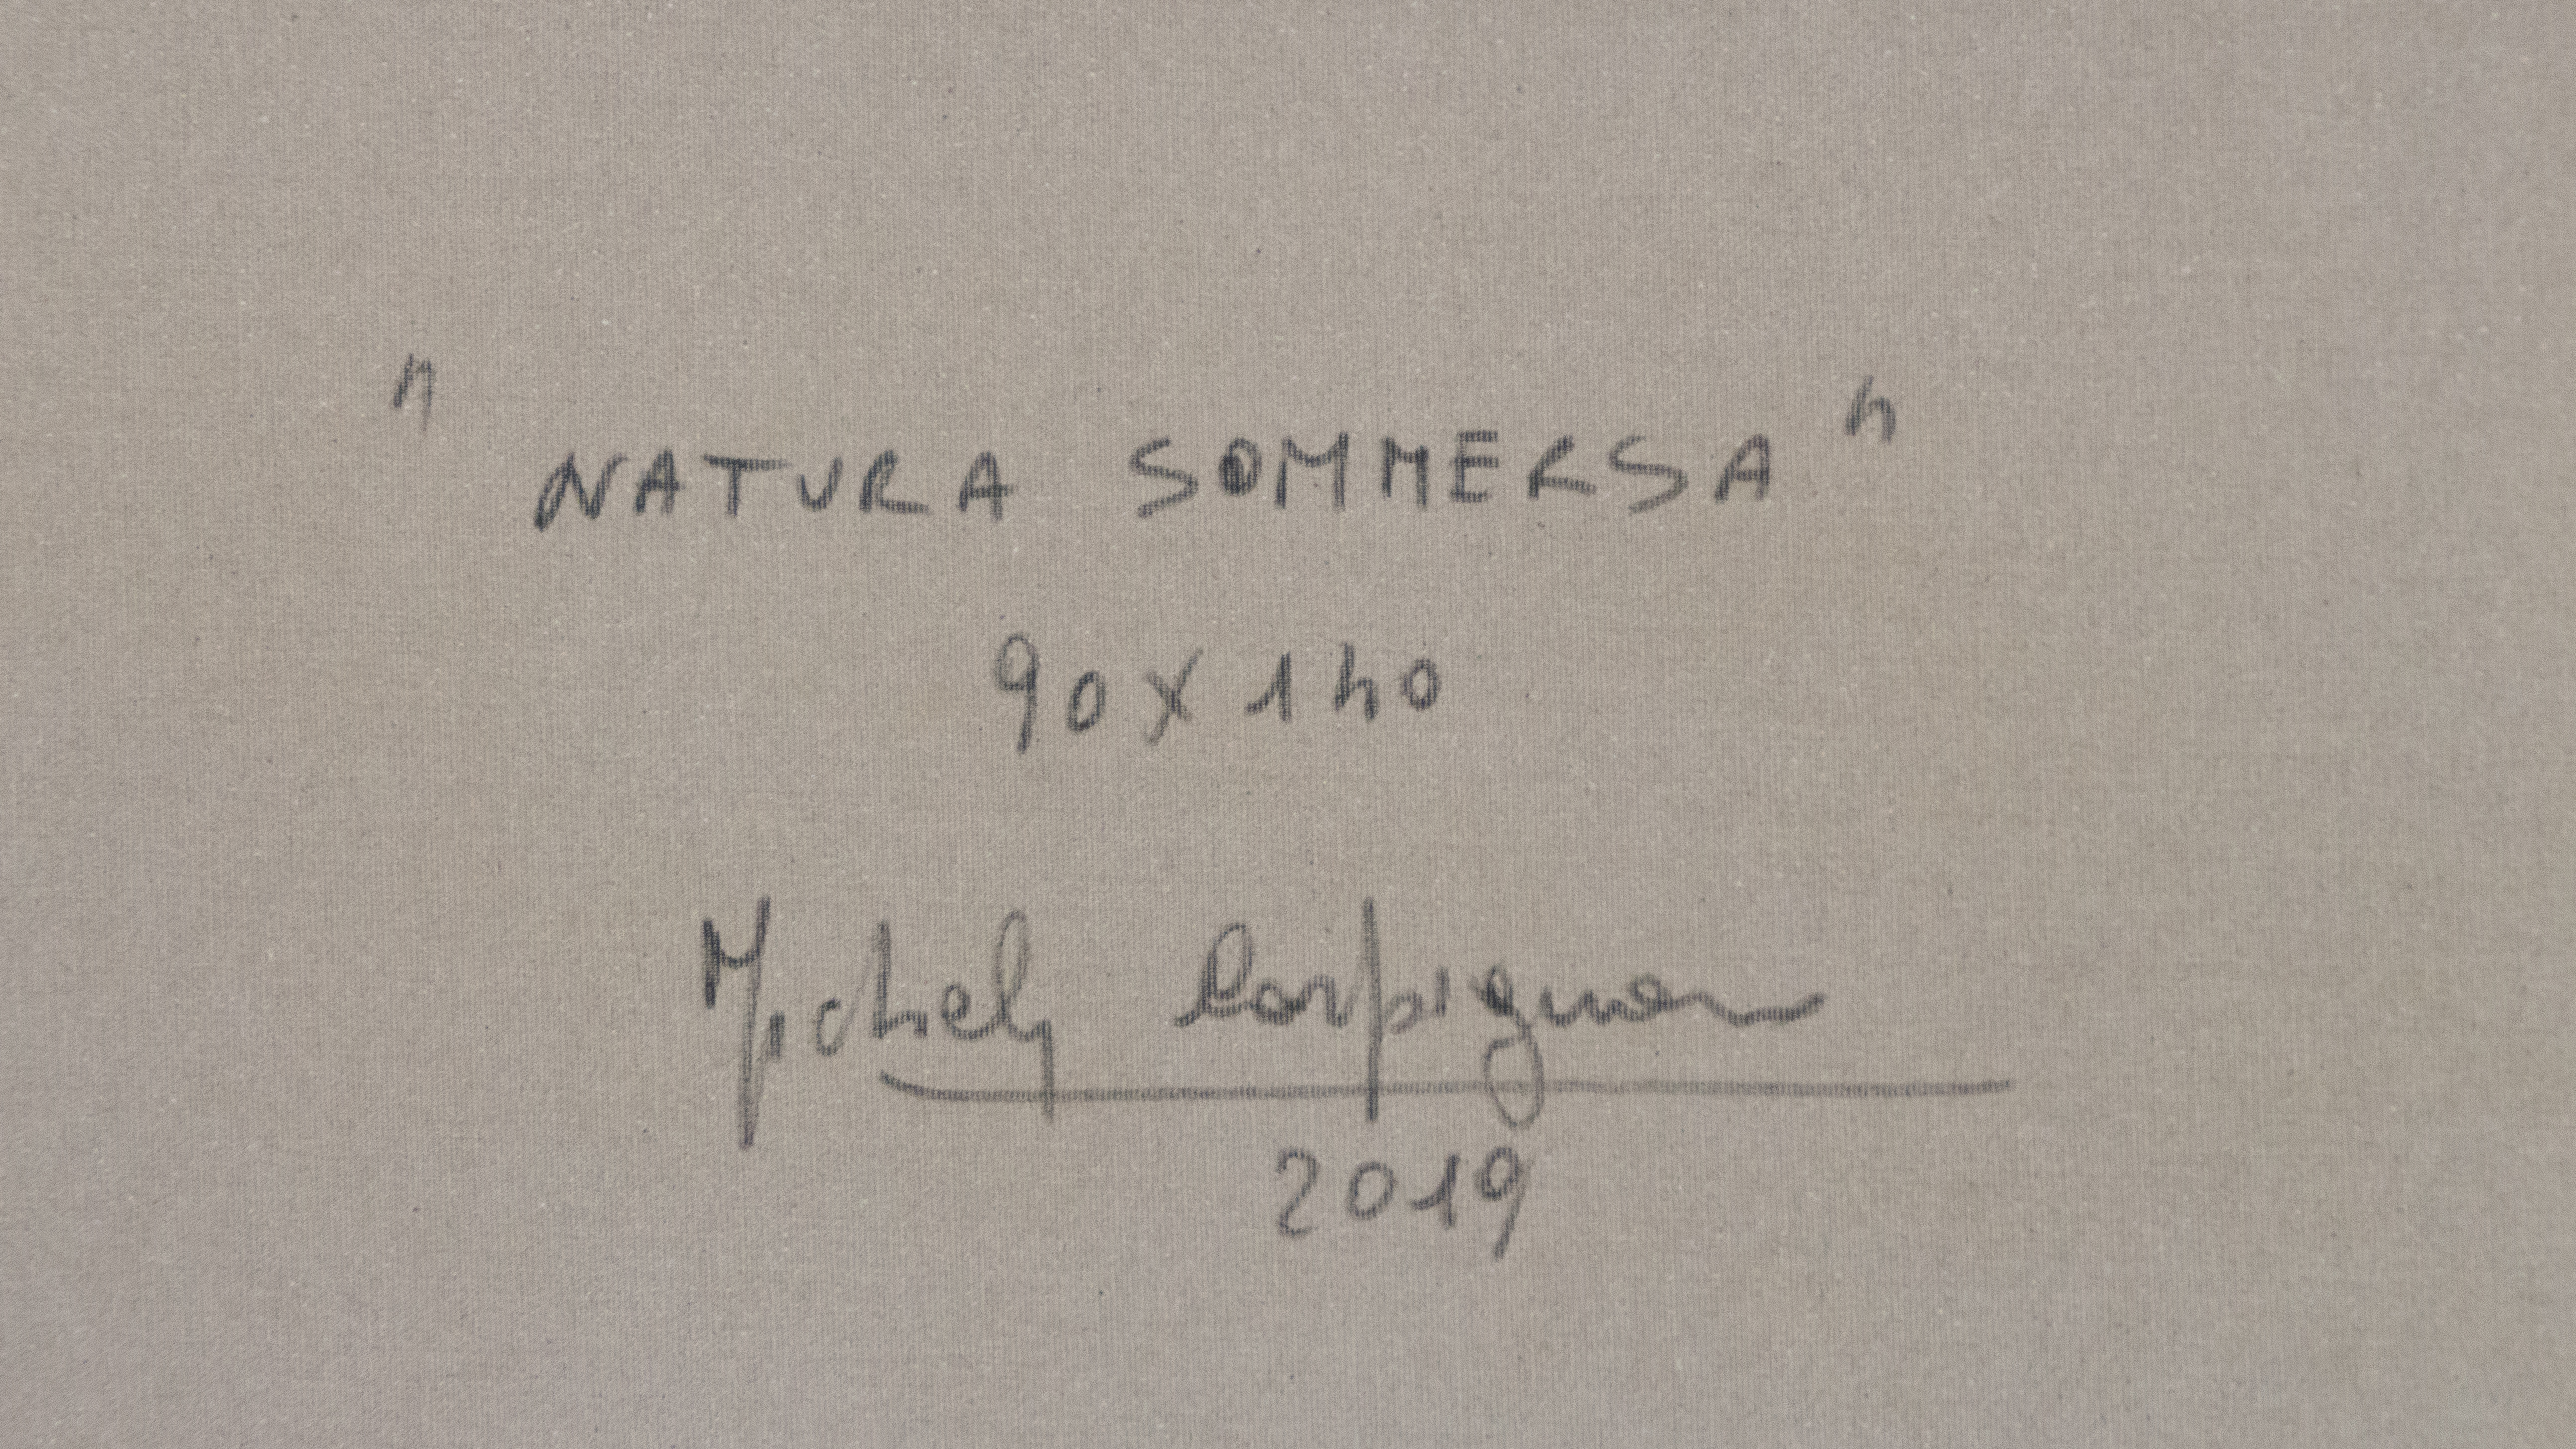 "NATURA SOMMERSA"
90 X 140
Michely Carpignan
2019